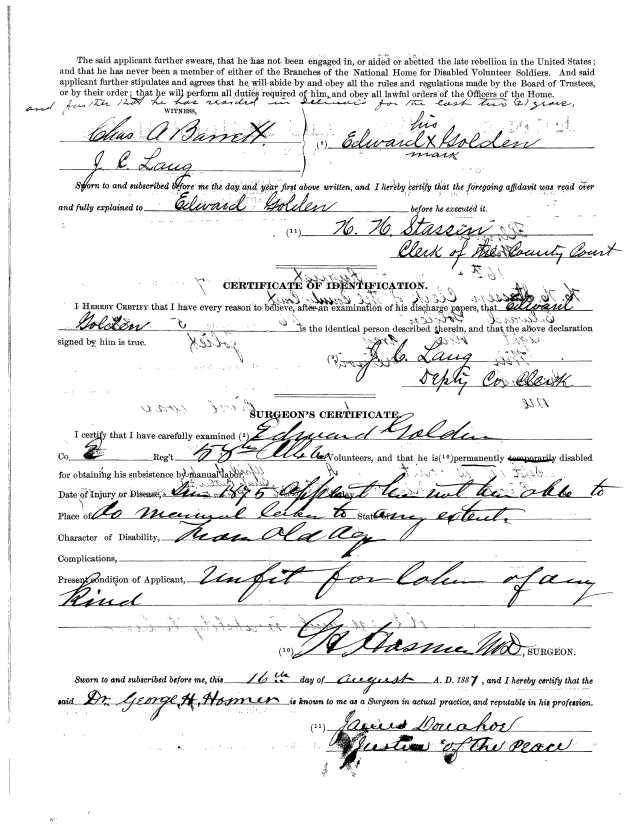 The said applicant further swears, that he has not been engaged in, or aided or abetted the late rebellion in the United States;
and that he has never been a member of either of the Branches of the National Home for Disabled Volunteer Soldiers. And said
applicant further stipulates and agrees that he will abide by and obey all the rules and regulations made by the Board of Trustees,
or by their order; that he will perform all duties required of him, and obey all lawful orders of the Officers of the Home.
and further that he has resided in for the last two (2) years,
WITNESS,
Chas A Barrett
his
(1) Edward X Golden
mark
J. C. Lang
Sworn to and subscribed before me the day and year first above written, and I hereby certify that the foregoing affidavit was read over
and fully explained to Edward Golden before he executed it.
(11) H. H. Stassen
Clerk of the County Court
CERTIFICATE OF IDENTIFICATION.
I HEREBY CERTIFY that I have every reason to believe, after an examination of his discharge papers, that Edward
Golden is the identical person described therein, and that the above declaration
signed by him is true.
J. C. Lang
Depty Co. Clerk
SURGEON'S CERTIFICATE.
I certify that I have carefully examined (2) Edward Golden
Co. Reg't Volunteers, and that he is (10) permanently temporarily disabled
for obtaining his subsistence by manual labor.
Date of Injury or Disease, applicant has not been able to
Place of do manual labor to State of any extent.
Character of Disability, From Old Age
Complications,
Present Condition of Applicant, Unfit for labor of any
kind
(10) G H Hosmer MD, SURGEON.
Sworn to and subscribed before me, this 16th day of August A. D. 1887, and I hereby certify that the
said Dr. George H. Hosmer is known to me as a Surgeon in actual practice, and reputable in his profession.
(11) James Donahoe
Justice of the Peace